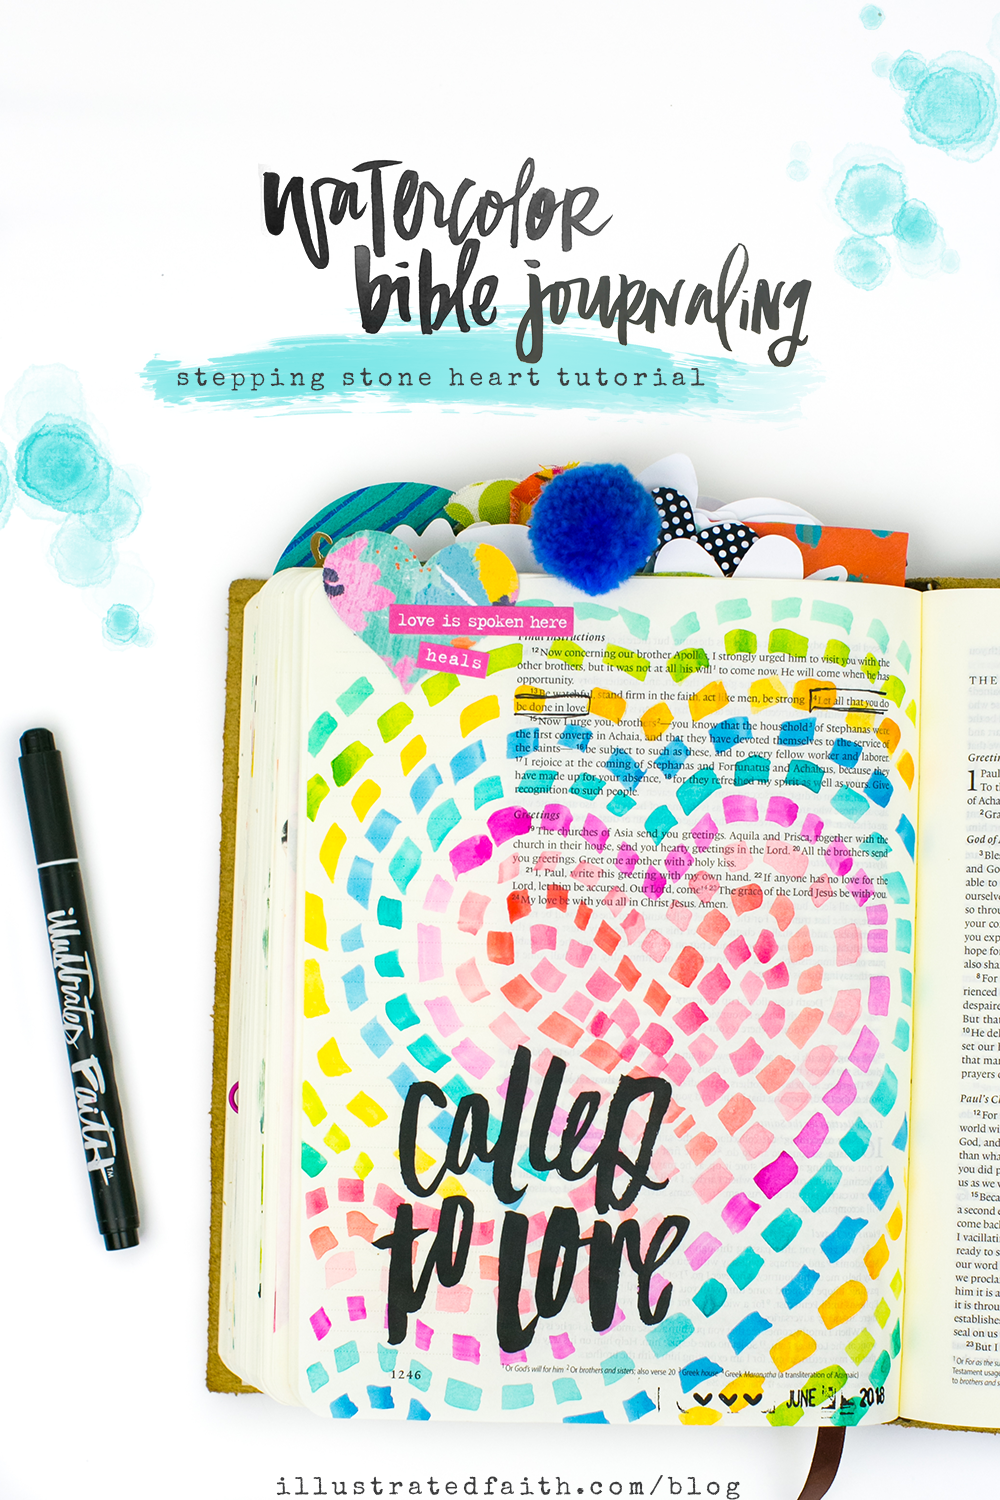 watercolor
bible journaling
stepping stone heart tutorial
love is spoken here
heals
Final Instructions
12 Now concerning our brother Apollos, I strongly urged him to visit you with the
other brothers, but it was not at all his will1 to come now. He will come when he has
opportunity.
13 Be watchful, stand firm in the faith, act like men, be strong. 14 Let all that you do
be done in love.
15 Now I urge you, brothers2—you know that the household3 of Stephanas were
the first converts in Achaia, and that they have devoted themselves to the service of
the saints— 16 be subject to such as these, and to every fellow worker and laborer.
17 I rejoice at the coming of Stephanas and Fortunatus and Achaicus, because they
have made up for your absence, 18 for they refreshed my spirit as well as yours. Give
recognition to such people.
Greetings
19 The churches of Asia send you greetings. Aquila and Prisca, together with the
church in their house, send you hearty greetings in the Lord. 20 All the brothers send
you greetings. Greet one another with a holy kiss.
21 I, Paul, write this greeting with my own hand. 22 If anyone has no love for the
Lord, let him be accursed. Our Lord, come!4 23 The grace of the Lord Jesus be with you.
24 My love be with you all in Christ Jesus. Amen.
called
to love
1246
1 Or God's will for him 2 Or brothers and sisters; also verse 20 3 Greek house 4 Greek Maranatha (a transliteration of Aramaic)
JUNE 2018
THE
Greetin
1 Paul
To th
of Acha
2 Gra
God of
3 Bles
and God
able to
ourselve
so throu
your co
you exp
hope fo
also sha
8 For
rienced
despaire
But tha
10 He del
set our
that mar
prayers
Paul's Ch
12 For
world wi
God, and
than wha
you did
us as we
15 Beca
a second
come back
I vacillati
ready to s
our word
we procla
him it is a
it is throu
establishe
seal on us
23 But I
1 Or For as the su
Testament usage
to brothers and s
illustrated Faith™
illustratedfaith.com/blog